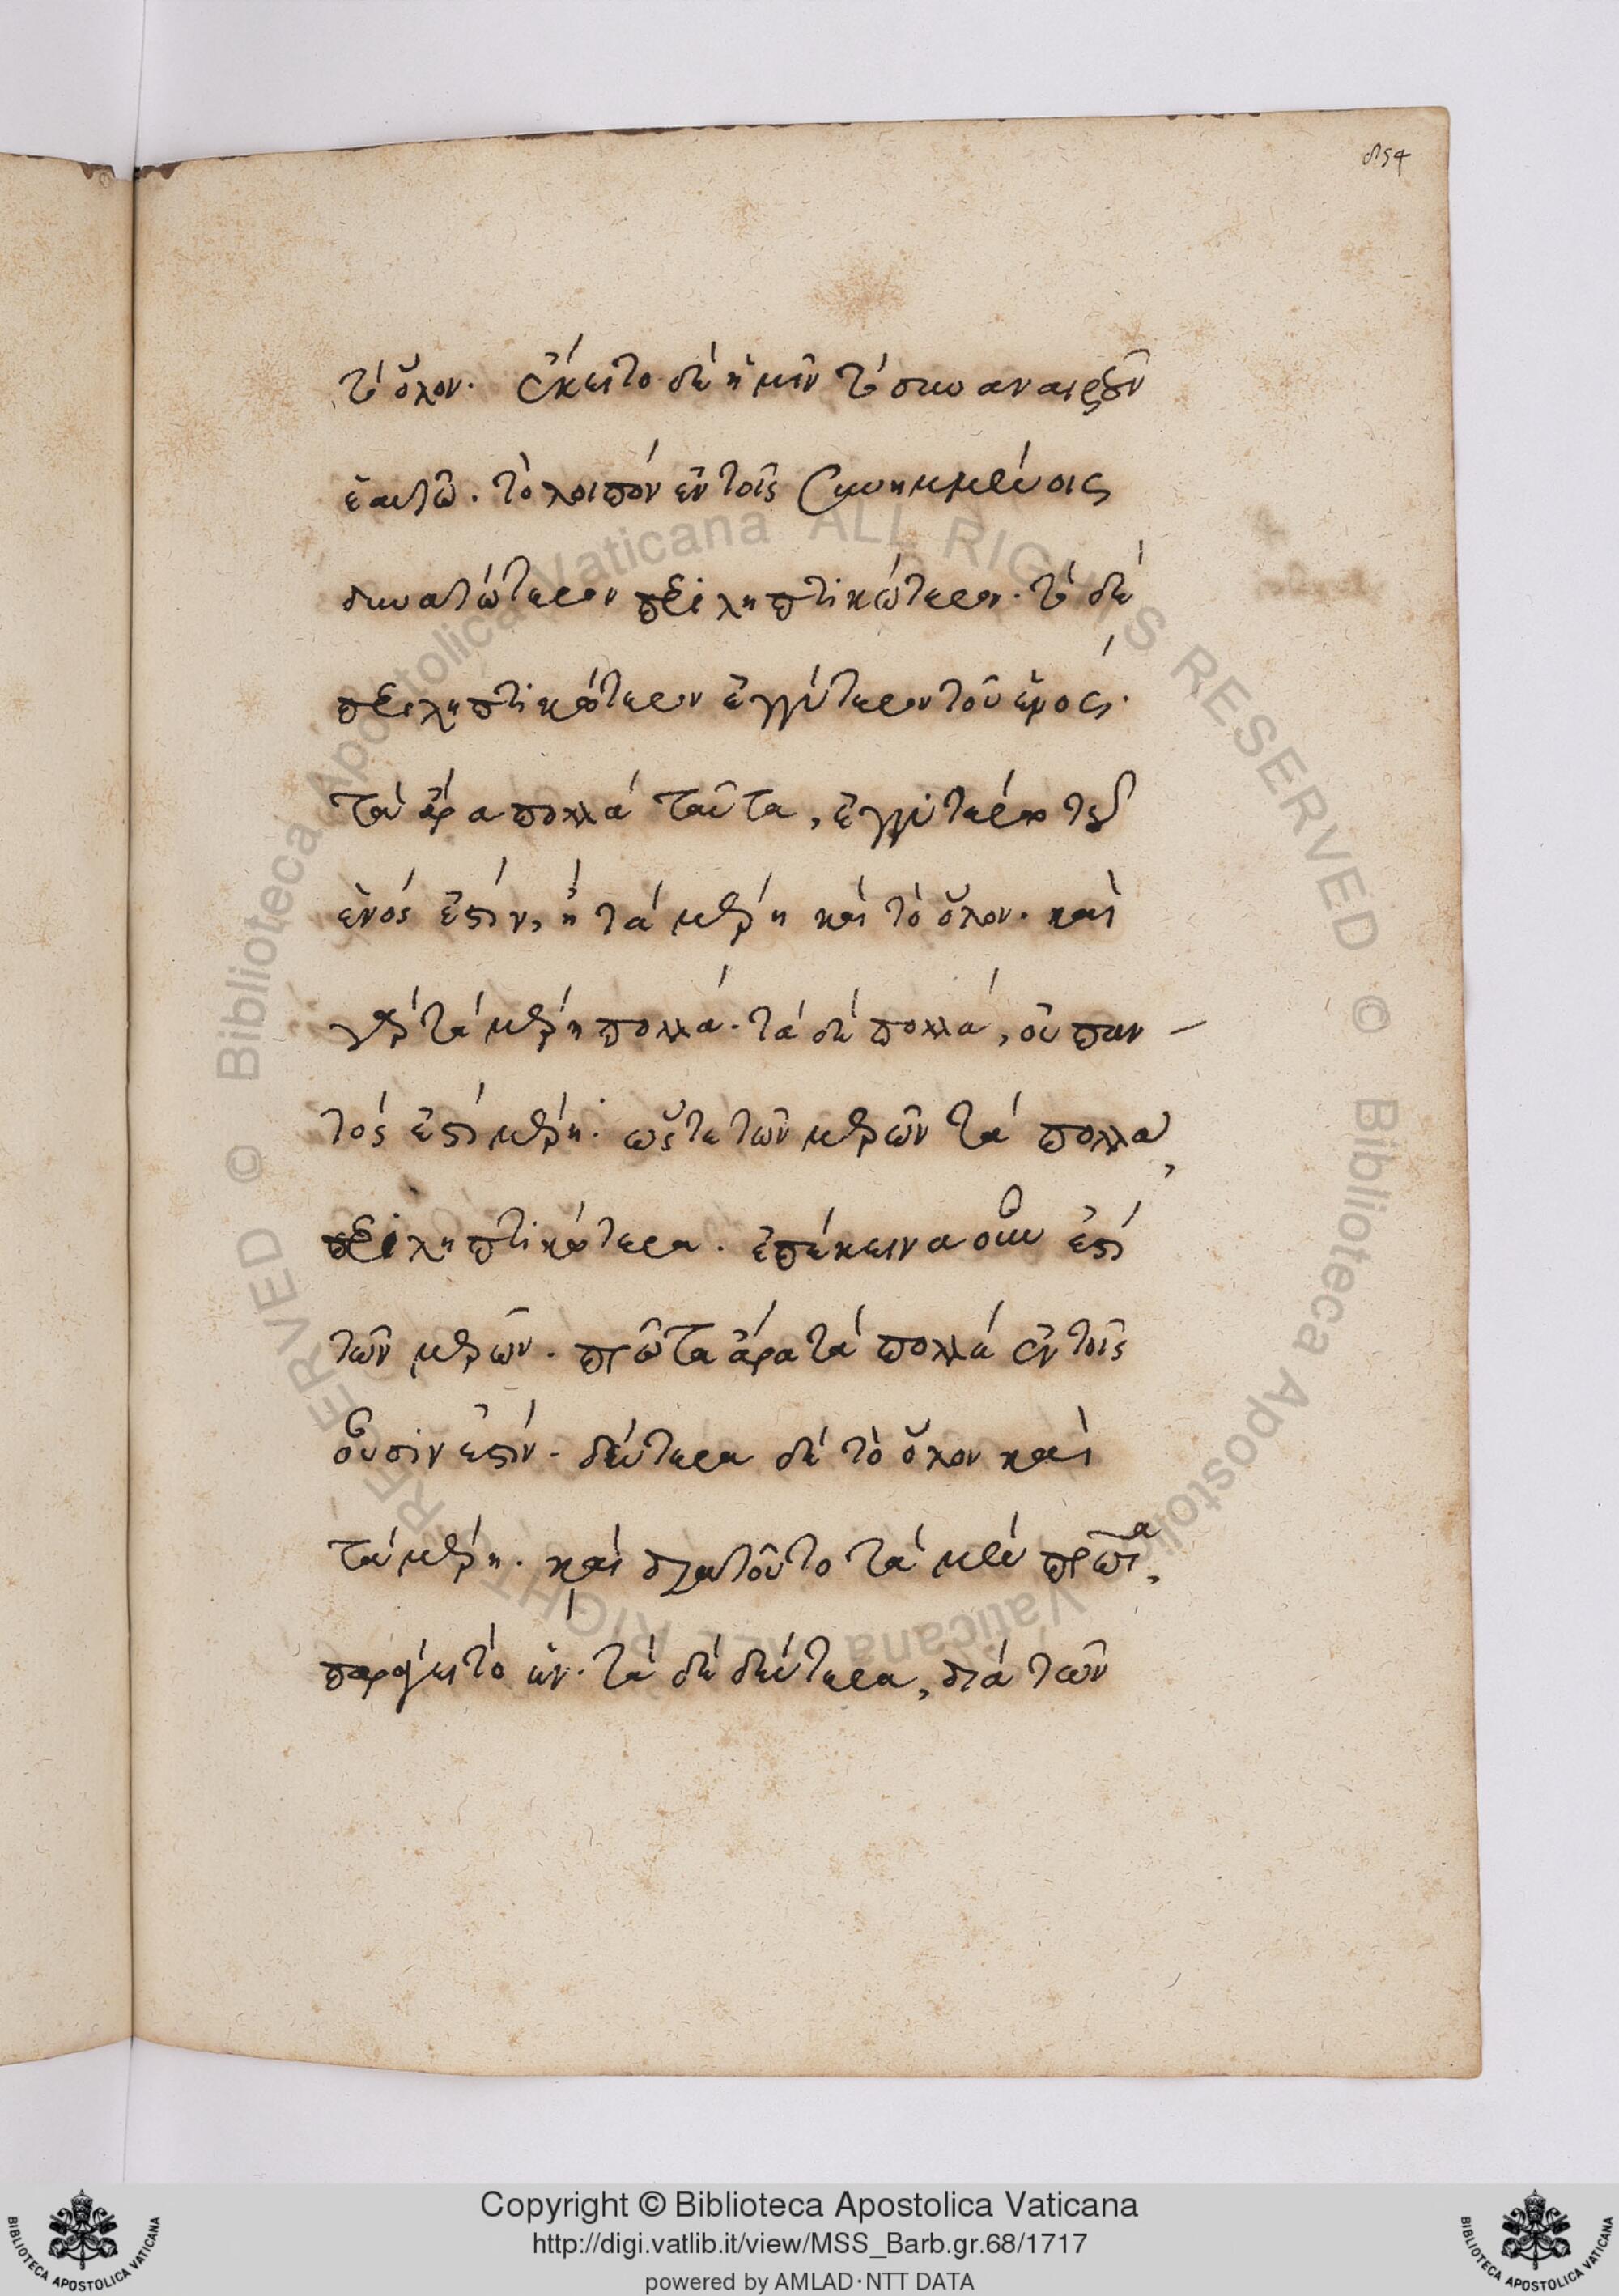 854
τὸ ὅλον. ἔκειτο δὲ ἡμῖν τὸ συναναιροῦν
ἑαυτῷ. τὸ λοιπὸν ἐν τοῖς συνημμένοις
δυνατώτερον περιληπτικώτερον. τὸ δὲ
περιληπτικώτερον ἐγγύτερον τοῦ ἑνός.
τὰ ἄρα πολλὰ ταῦτα, ἐγγυτέρω τοῦ
ἑνός ἐστιν, ἢ τὰ μέρη καὶ τὸ ὅλον. καὶ
γὰρ τὰ μέρη πολλά. τὰ δὲ πολλὰ, οὐ παν-
τός ἐστι μέρη. ὥστε τῶν μερῶν τὰ πολλὰ,
περιληπτικώτερα. ἐπέκεινα οὖν ἐστὶ
τῶν μερῶν. πρῶτα ἄρα τὰ πολλὰ ἐν τοῖς
οὖσίν ἐστιν. δεύτερα δὲ τὸ ὅλον καὶ
τὰ μέρη. καὶ διατοῦτο τὰ μὲν πρῶτα,
παράγει τὸ ἕν. τὰ δὲ δεύτερα, διὰ τῶν
Copyright © Biblioteca Apostolica Vaticana
http://digi.vatlib.it/view/MSS_Barb.gr.68/1717
powered by AMLAD·NTT DATA
BIBLIOTECA APOSTOLICA VATICANA
BIBLIOTECA APOSTOLICA VATICANA
© Biblioteca Apostolica Vaticana ALL RIGHTS RESERVED © Biblioteca Apostolica Vaticana ALL RIGHTS RESERVED